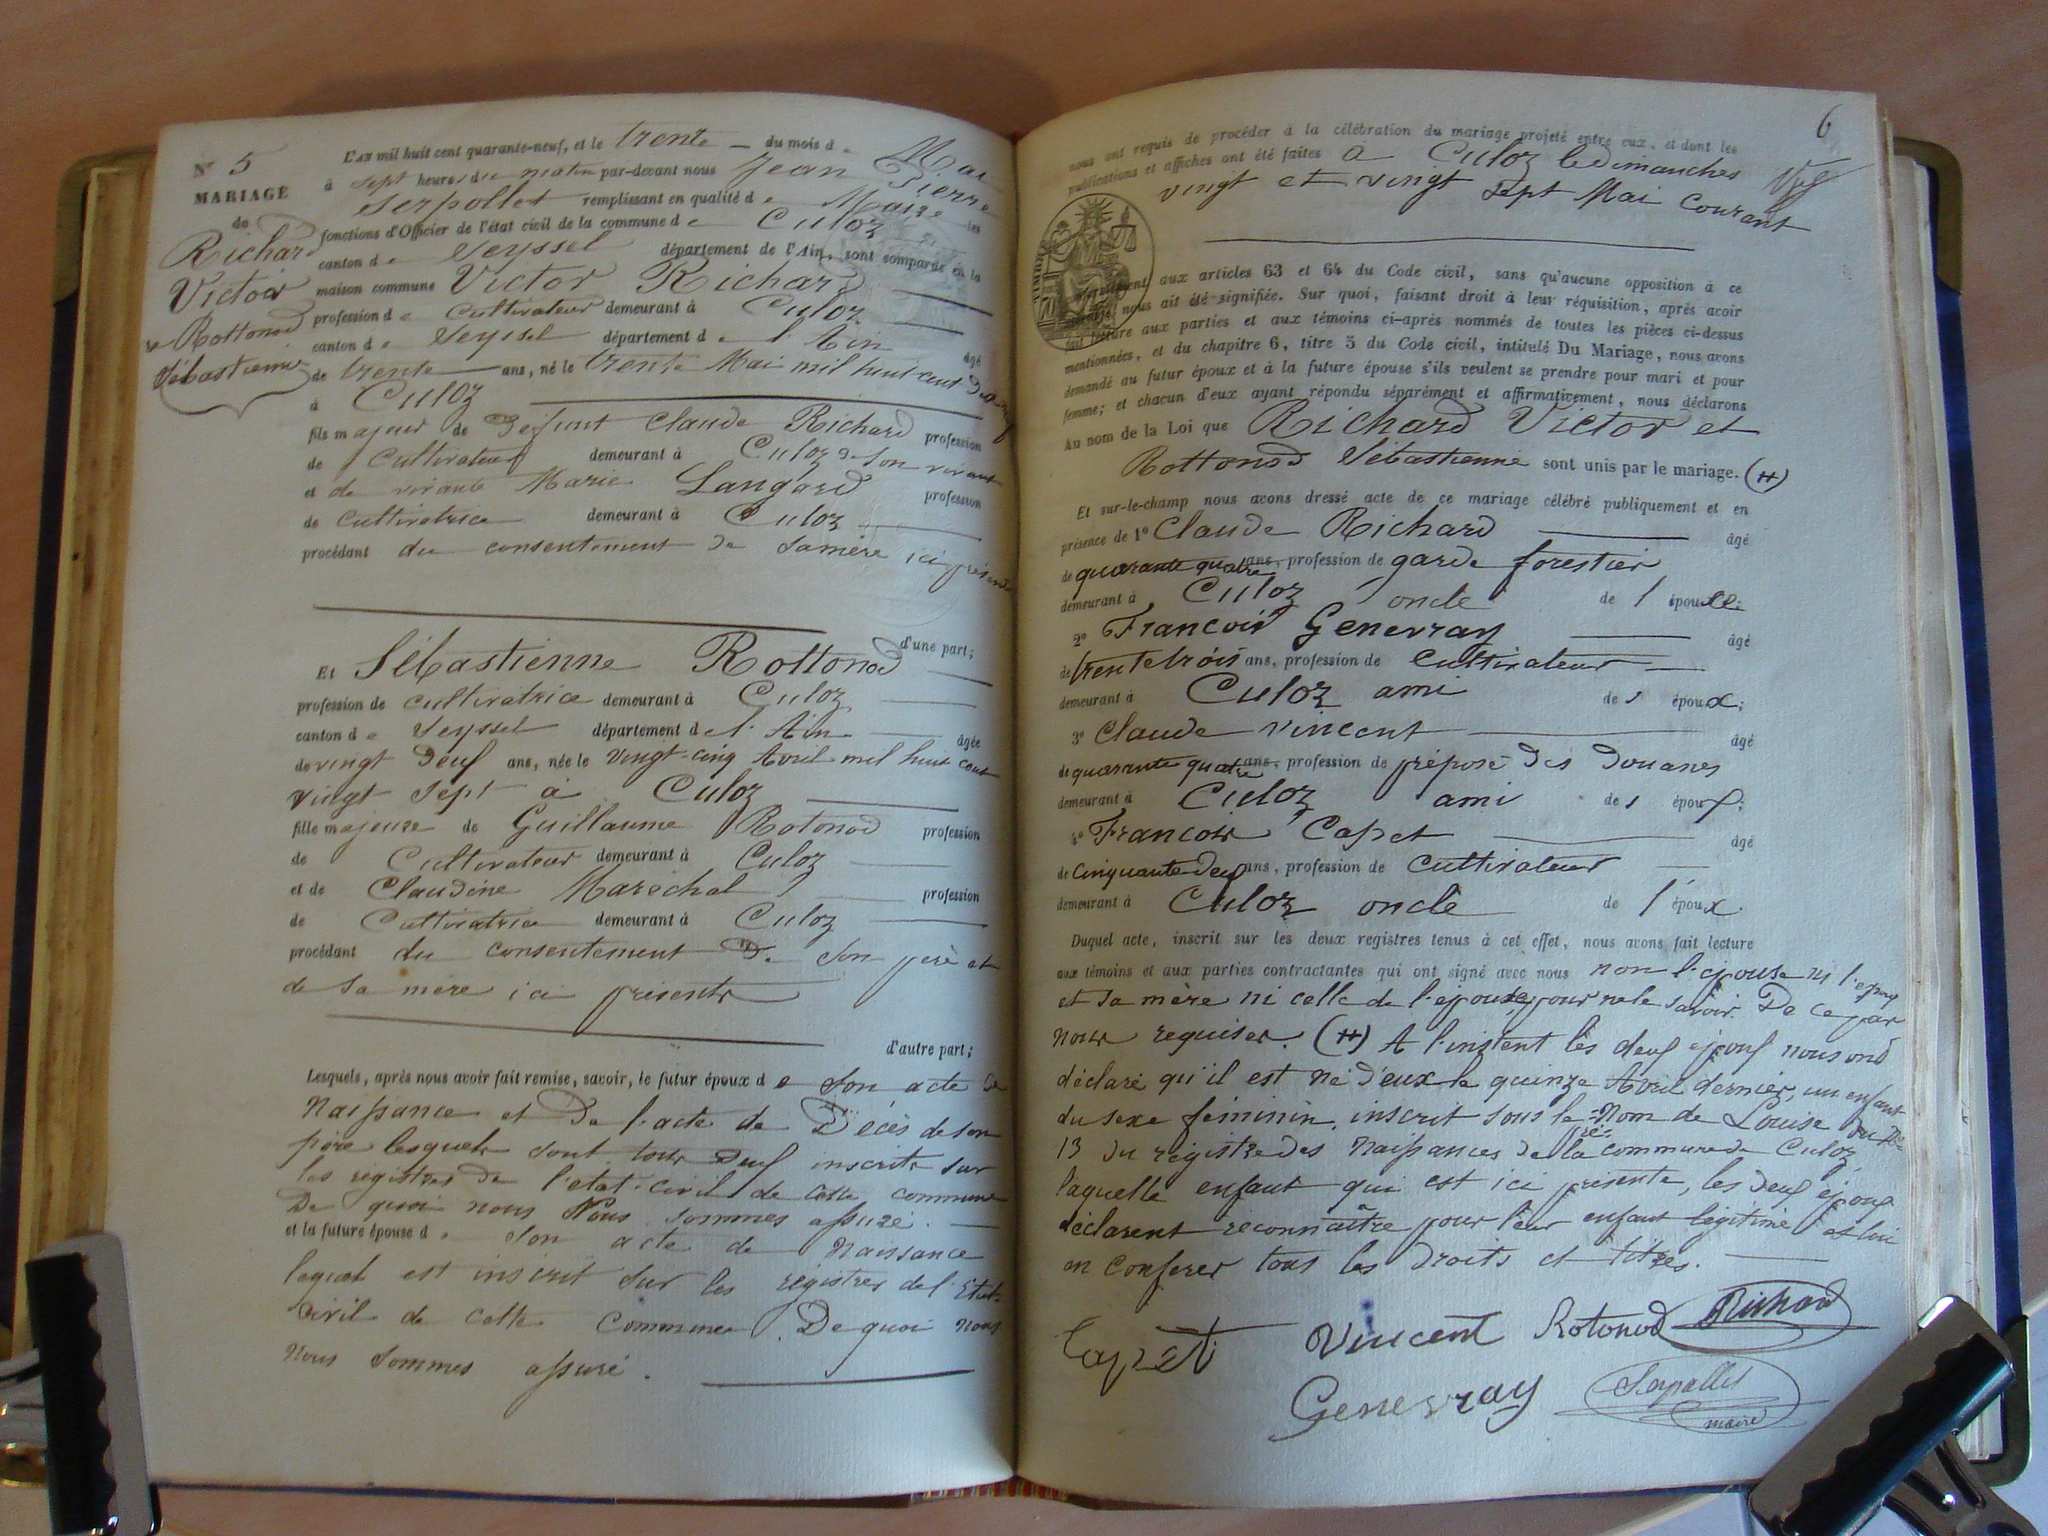 N° 5
MARIAGE
de
Richard
Victor
& Rottonod
Sébastienne
L'an mil huit cent quarante-neuf, et le trente du mois de Mai
à sept heures du matin par-devant nous Jean Pierre
Serpollet remplissant en qualité de Maire les
fonctions d'Officier de l'état civil de la commune de Culoz
canton de Seyssel département de l'Ain, sont comparus en la
maison commune Victor Richard
profession de Cultivateur demeurant à Culoz
canton de Seyssel département de l'Ain âgé
de trente ans, né le trente Mai mil huit cent dix neuf
à Culoz
fils majeur de Défunt Claude Richard profession
de Cultivateur demeurant à Culoz de son vivant
et de vivante Marie Langard profession
de Cultivatrice demeurant à Culoz
procédant du consentement de sa mère ici présente
d'une part;
Et Sébastienne Rottonod
profession de cultivatrice demeurant à Culoz
canton de Seyssel département de l'Ain âgée
de vingt deuf ans, née le vingt-cinq Avril mil huit cent
vingt sept à Culoz
fille majeure de Guillaume Rotonod profession
de Cultivateur demeurant à Culoz
et de Claudine Maréchal profession
de Cultivatrice demeurant à Culoz
procédant du consentement De son père et
de sa mère ici présents
d'autre part;
Lesquels, après nous avoir fait remise, savoir, le futur époux de son acte de
Naissance et De l'acte de Décès de son
père lesquels sont tous deuf inscrits sur
les registres de l'état-civil de cette commune
De quoi nous Nous sommes assuré.
et la future épouse de son acte de Naissance
lequel est inscrit sur les registres de l'Etat-
Civil de cette Commune. De quoi nous
nous sommes assuré.
6
nous ont requis de procéder à la célébration du mariage projeté entre eux, et dont les
publications et affiches ont été faites à Culoz les Dimanches
vingt et vingt sept Mai courant
TIMBRE
conformément aux articles 63 et 64 du Code civil, sans qu'aucune opposition à ce
mariage nous ait été signifiée. Sur quoi, faisant droit à leur réquisition, après avoir
fait lecture aux parties et aux témoins ci-après nommés de toutes les pièces ci-dessus
mentionnées, et du chapitre 6, titre 5 du Code civil, intitulé Du Mariage, nous avons
demandé au futur époux et à la future épouse s'ils veulent se prendre pour mari et pour
femme; et chacun d'eux ayant répondu séparément et affirmativement, nous déclarons
Au nom de la Loi que Richard Victor et
Rottonod Sébastienne sont unis par le mariage. (H)
Et sur-le-champ nous avons dressé acte de ce mariage célébré publiquement et en
présence de 1° Claude Richard âgé
de quarante quatre ans, profession de garde forestier
demeurant à Culoz oncle de l'époux
2° Francois Genevray âgé
de trente trois ans, profession de Cultivateur
demeurant à Culoz ami des époux;
3° Claude Vincent âgé
de quarante quatre ans, profession de préposé des Douanes
demeurant à Culoz ami des époux;
4° Francois Capet âgé
de Cinquante Deuf ans, profession de Cultivateur
demeurant à Culoz oncle de l'époux.
Duquel acte, inscrit sur les deux registres tenus à cet effet, nous avons fait lecture
aux témoins et aux parties contractantes qui ont signé avec nous non l'épouse ni l'époux
et sa mère ni celle de l'épouse pour ne le savoir. De ce par
nous requises. (H) A l'instent les deuf épouf nous ont
déclaré qu'il est né d'eux le quinze Avril dernier, un enfant
du sexe féminin, inscrit sous le Nom de Louise
13 du registre des Naissances de la commune de Culoz
laquelle enfant qui est ici présente, les deuf épouf
déclarent reconnaître pour leur enfant légitime et lui
en conférer tous les droits et titres.
Capet Vincent Rotonod Richard
Genevray Serpollet
maire